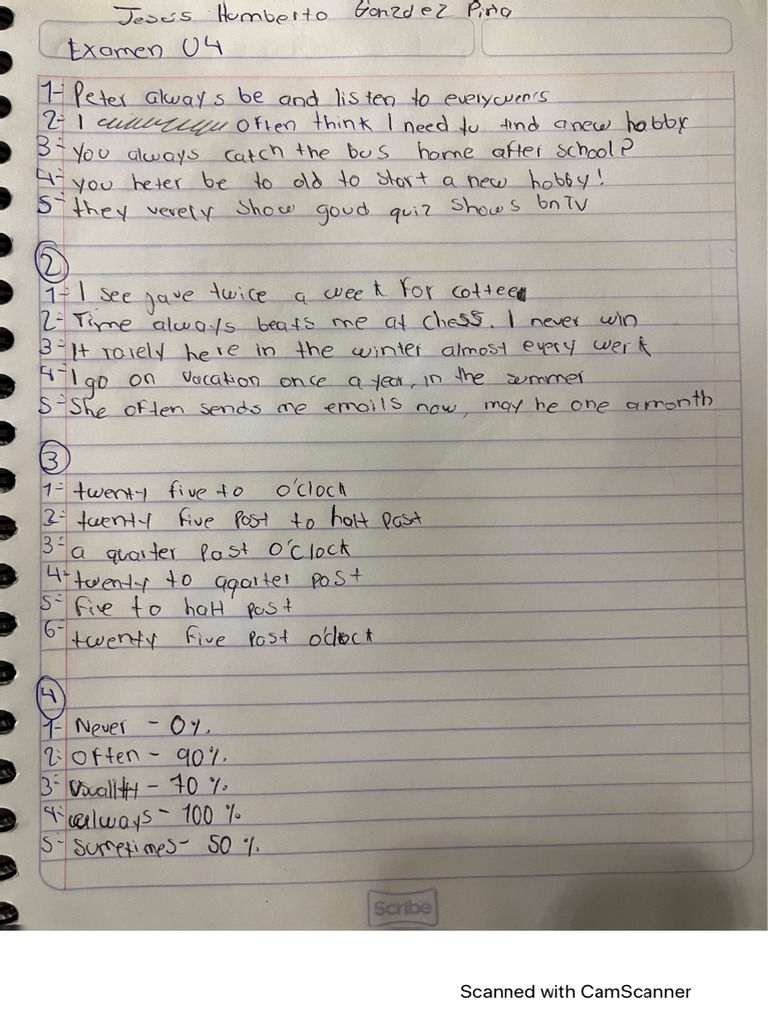 Jesús Humberto Gonzdez Pina
Examen 04
1- Peter always be and listen to everywen's
2- I often think I need to find a new hobby
3- you always catch the bus home after school?
4- you heter be to old to start a new hobby!
5- they verely show goud quiz shows bn TV
2
1- I see jave twice a week for cottee
2- Time always beats me at chess. I never win
3- It rarely here in the winter almost every werk
4- I go on vacation once a year, in the summer
5- She often sends me emails now, may he one a month
3
1- twenty five to o'clock
2- twenty five past to halt past
3- a quarter past o'clock
4- twenty to aqarter past
5- five to halt past
6- twenty five past o'clock
4
1- Never - 0%.
2- often - 90%.
3- - 70 %.
4- always - 100 %
5- sometimes - 50 %.
Scribe
Scanned with CamScanner